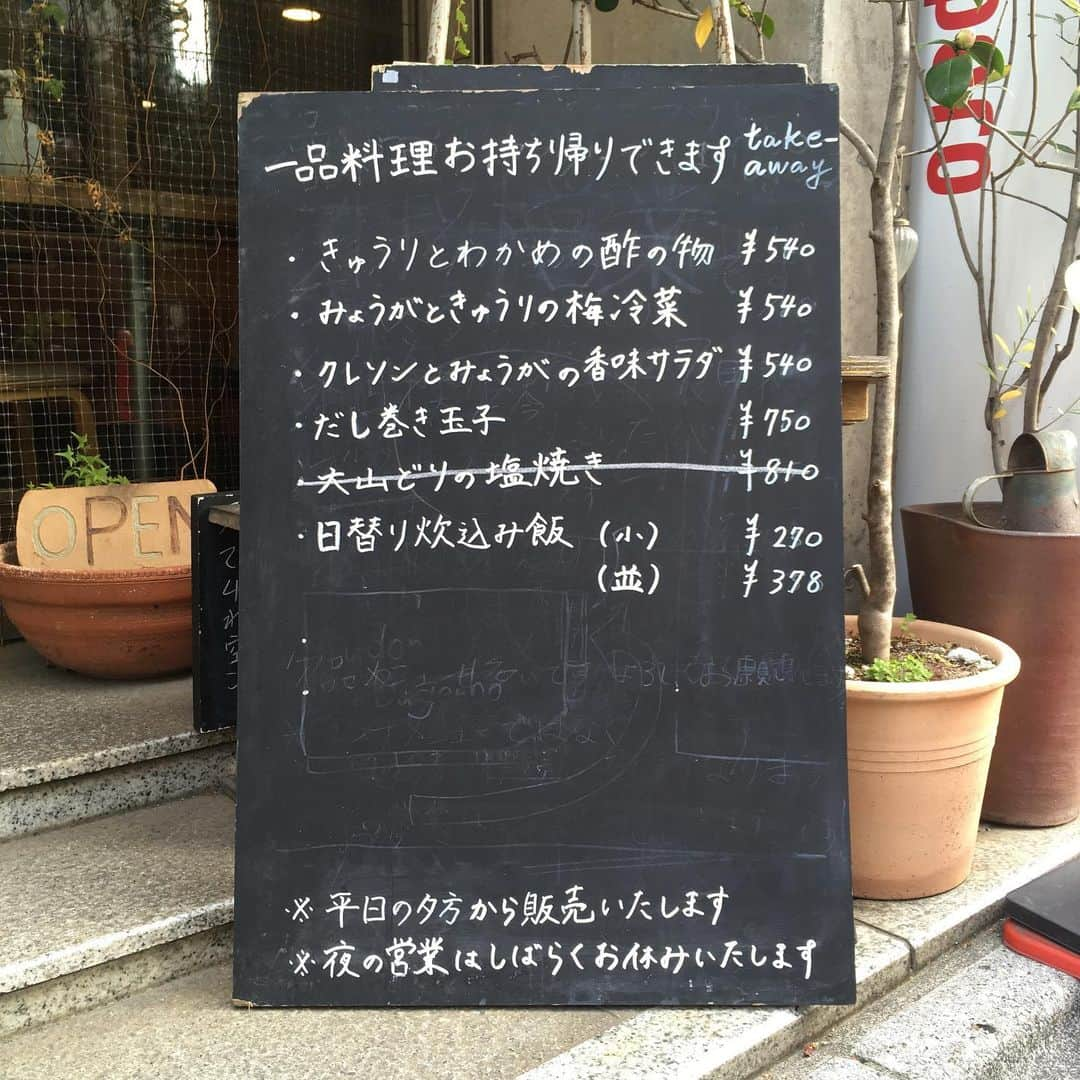 一品料理お持ち帰りできます take-away
・きゅうりとわかめの酢の物 ¥540
・みょうがときゅうりの梅冷菜 ¥540
・クレソンとみょうがの香味サラダ ¥540
・だし巻き玉子 ¥750
・大山どりの塩焼き ¥810
・日替り炊込み飯 (小) ¥270
(並) ¥378
※平日の夕方から販売いたします
※夜の営業はしばらくお休みいたします
OPEN